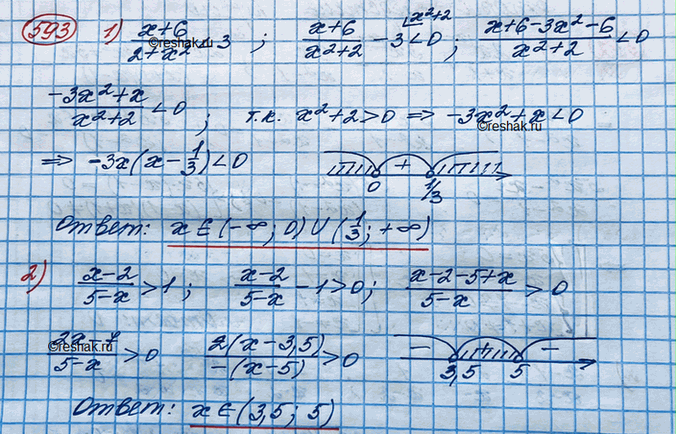 593 1) (x+6)/(2+x²) < 3 ; (x+6)/(x²+2) - 3 \x²+2 < 0 ; (x+6-3x²-6)/(x²+2) < 0
(-3x²+x)/(x²+2) < 0 ; т.к. x²+2>0 => -3x²+x<0
=> -3x(x-1/3)<0 + 0 1/3
Ответ: x∈(-∞; 0)∪(1/3; +∞)
2) (x-2)/(5-x) > 1 ; (x-2)/(5-x) - 1 > 0 ; (x-2-5+x)/(5-x) > 0
(2x-7)/(5-x) > 0 2(x-3,5)/(-(x-5)) > 0 - + - 3,5 5
Ответ: x∈(3,5; 5)
©reshak.ru
©reshak.ru
©reshak.ru